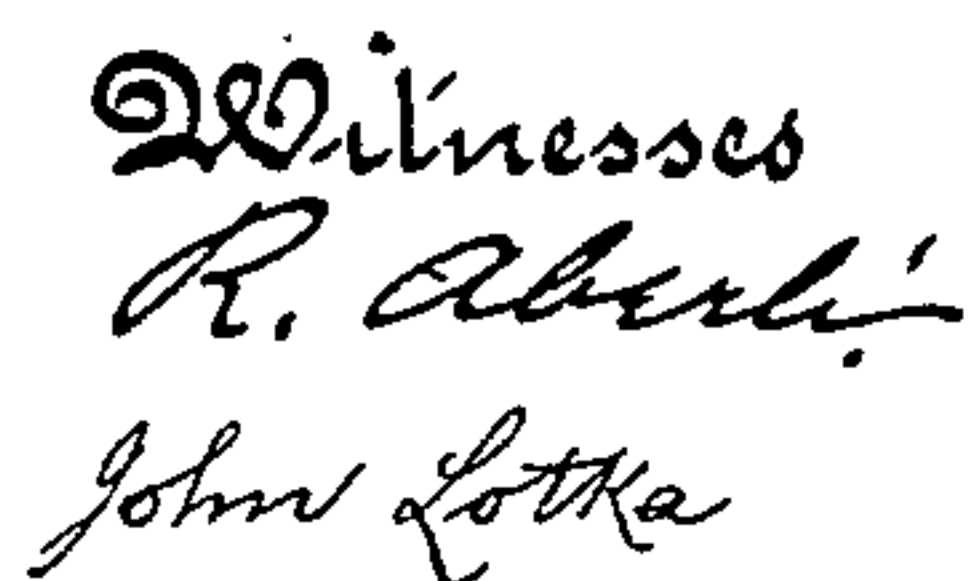 Witnesses
R. Aberli.
John Lotka